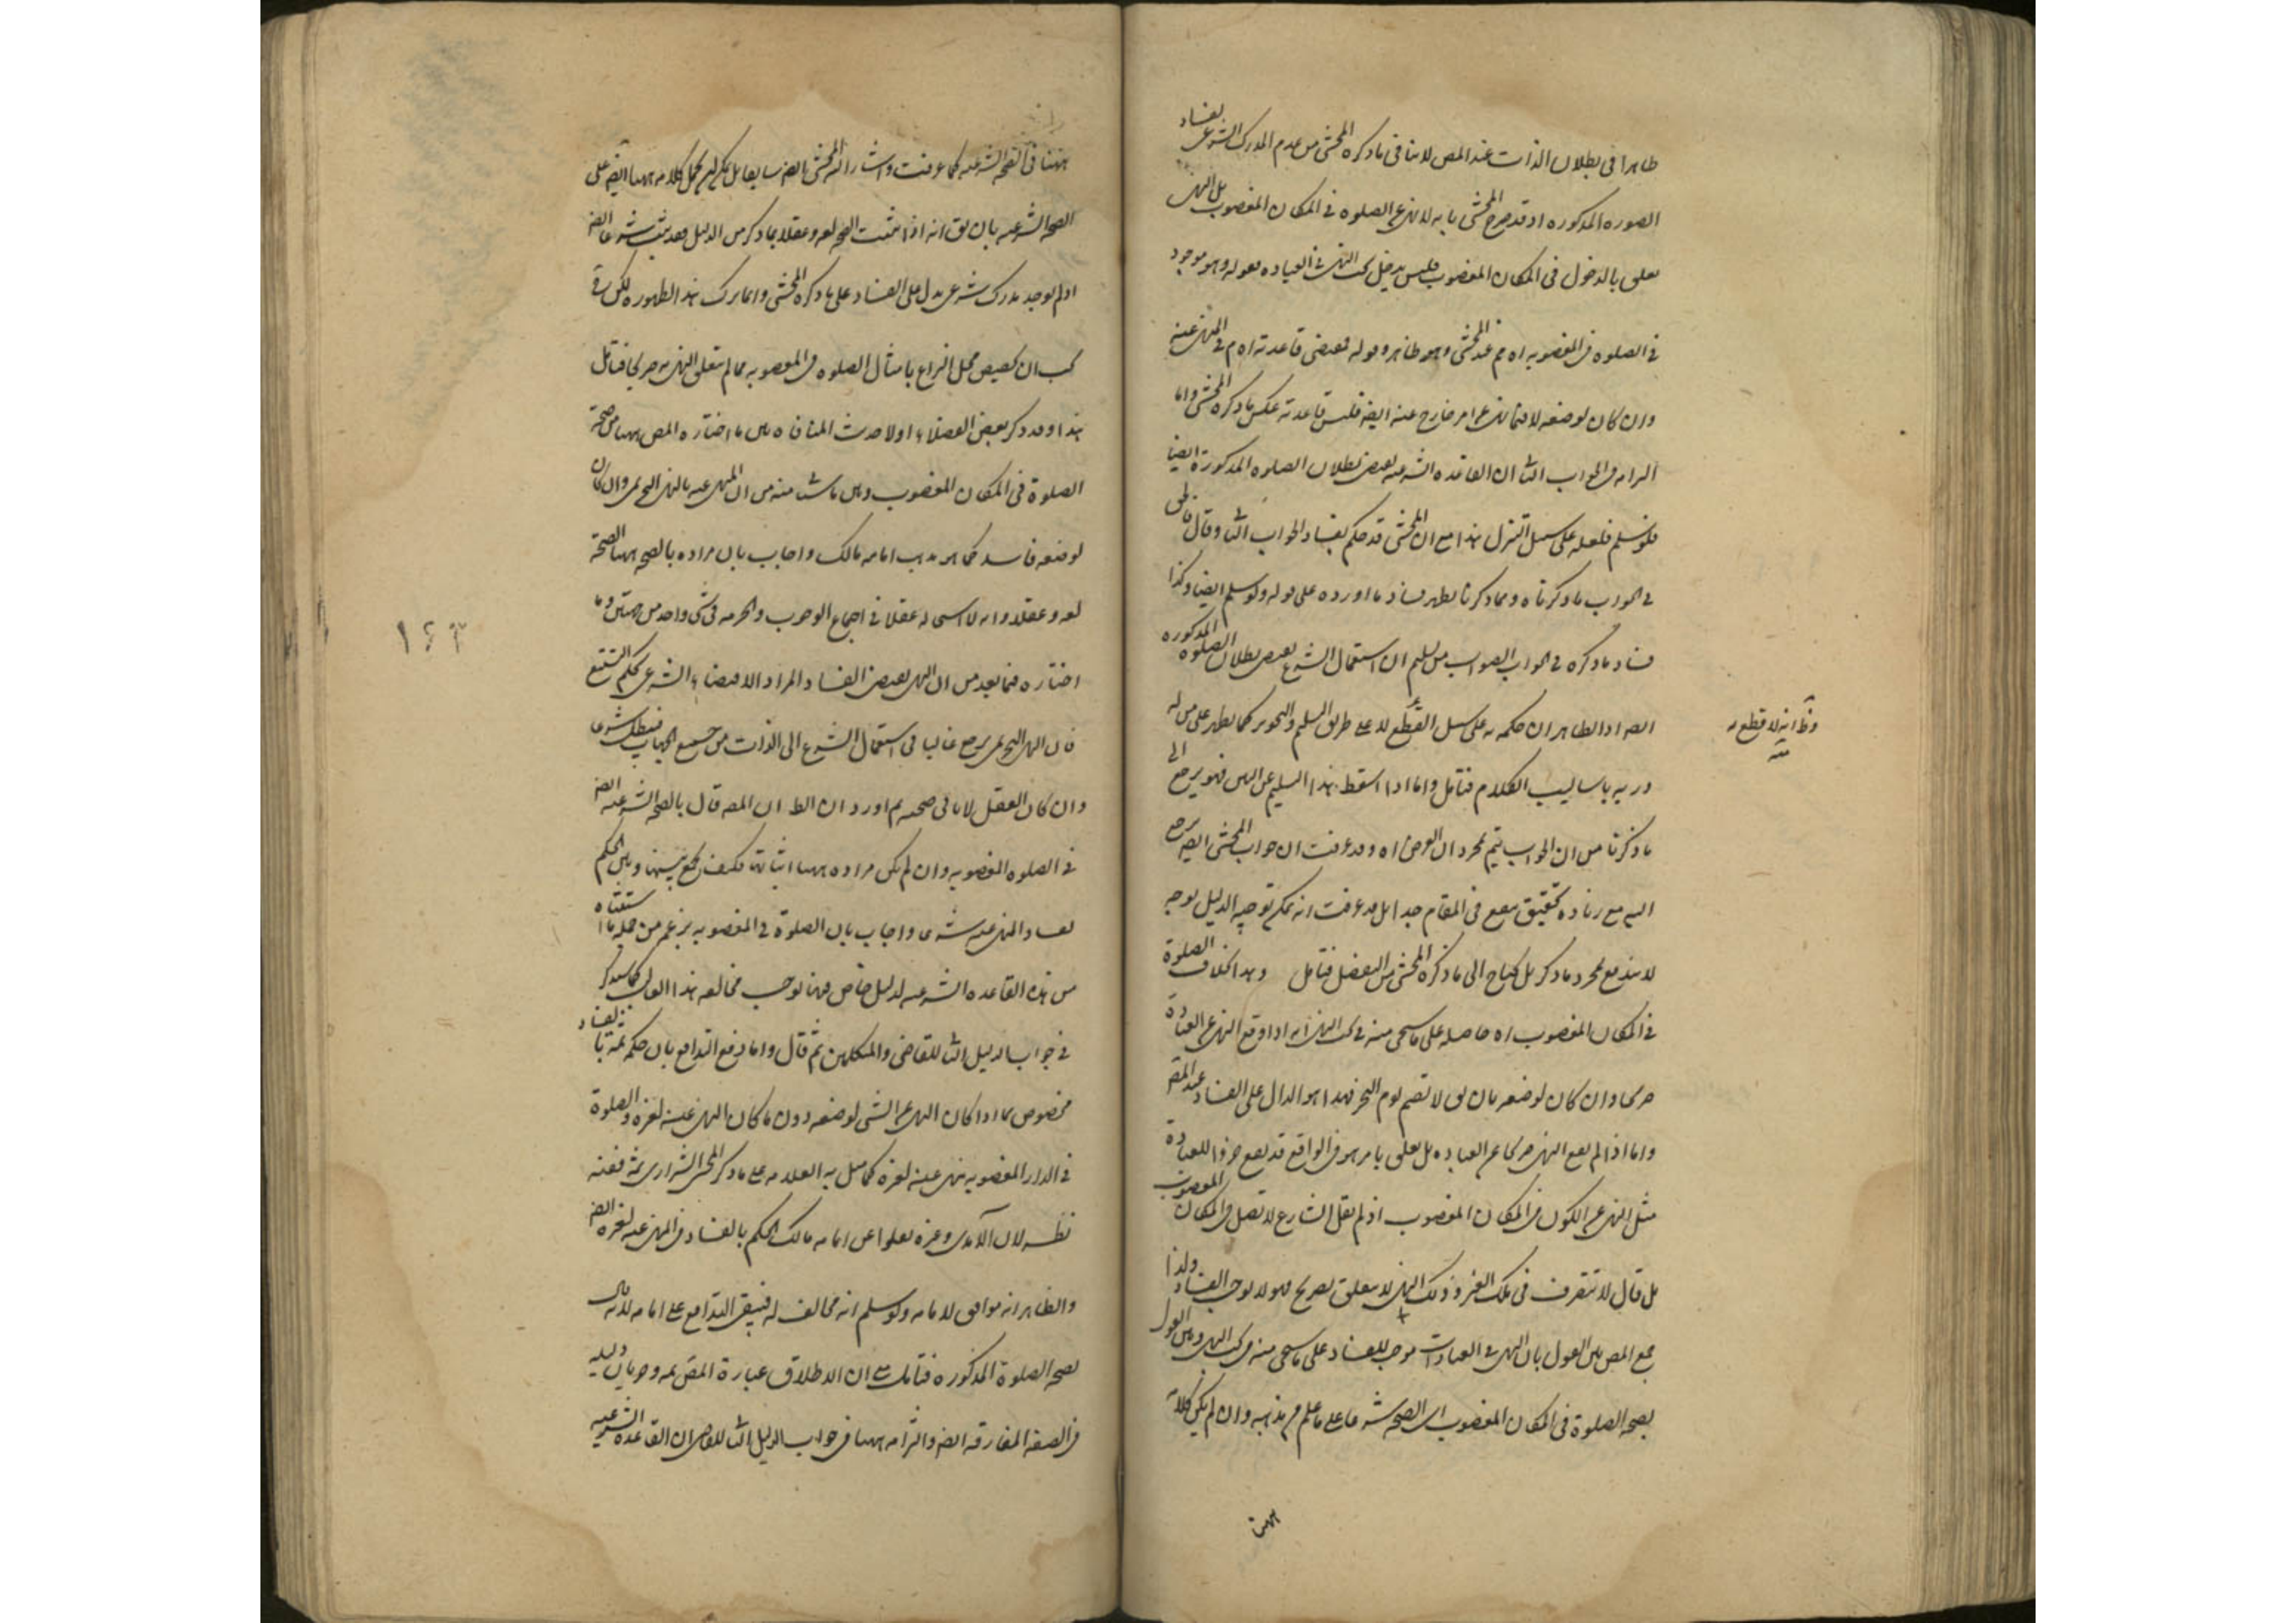 ظاهرا في بطلان الذات عند المص لا ينافي ما ذكره المحشى من عدم المدرك الشرعى بفساد
الصوره المذكوره اذ قد صرح المحشى بانه لا نهى عن الصلوه في المكان المغصوب بل النهى
تعلق بالدخول في المكان المغصوب فليس يدخل تحت النهى في العباده قوله وهو موجود
في الصلوه في المغصوبه اه مم عند المحشى وهو ظاهر وقوله فمقتضى قاعدته اه م في المنهى عنه
وان كان لوصفه لا فيما نهى عن امر خارج عنه ايضا فليس قاعدته عكس ما ذكره المحشى واما
الزامه في الجواب الثا ان القاعده الشرعيه يقتضى بطلان الصلوه المذكورة ايضا
فلو سلم فلعله على سبيل التنزل هذا مع ان المحشى قد حكم بفساد الجواب الثا وقال
في الجواب ما ذكرناه ومما ذكرنا يظهر فساد ما اورده على قوله ولو سلم ايضا وكذا
فساد ما ذكره في الجواب الصواب من تسليم ان استعمال الشرع يقتضى بطلان الصلوه المذكوره
ايضه اذ الظاهر ان حكمه به على سبيل القطع لا على طريق التسليم والتجويز كما يظهر على من له
وظ انه لا قطع به
منه
دربه باساليب الكلام فتامل واما اذا اسقط هذا التسليم عن البين فهو يرجع الى
ما ذكرنا من ان الجواب يتم بمجرد ان الغرض اه وقد عرفت ان جواب المحشى ايضه يرجع
اليه مع زيادة تحقيق ينفع في المقام جدا بل قد عرفت انه يمكن توجيه الدليل بوجه
لا يندفع بمجرد ما ذكر بل يحتاج الى ما ذكره المحشى من التفصيل فتامل وبهذا خلاف الصلوة
في المكان المغصوب اه حاصله على ما سيجى منه في بحث النهى انه اذا وقع النهى عن العبادة
صريحا وان كان لوصفه بان يق لا تصم يوم النحر فهذا هو الدال على الفساد عند المص
واما اذا لم يقع النهى صريحا عن العباده بل تعلق بامر هو في الواقع قد يقع جزءا للعبادة
مثل النهى عن الكون في المكان المغصوب اذ لم يقل الشارع لا تصل في المكان المغصوب
بل قال لا تتصرف في ملك الغير وذلك النهى لا يتعلق بصريح فهو لا يوجب الفساد ولذا
جمع المص بين القول بان النهى في العبادات موجب للفساد على ما سيجى منه في بحث النهى وبين القول
بصحة الصلوة في المكان المغصوب اى الصحه شرعا على ما علم من مذهبه وان لم يكن كلامه
ههنا
ههنا في الصحه الشرعيه كما عرفت واشار اليه المحشى ايضه سابقا بل يمكن حمل كلامه ههنا ايضه على
الصحه الشرعيه بان يق انه اذا ثبت الصحه لغه وعقلا بما ذكر من الدليل فقد يثبت شرعا ايضه
اذ لم يوجد مدرك شرعى يدل على الفساد على ما ذكره المحشى وانما ترك هذا لظهوره لكن في
يجب ان يخصص محل النزاع بامثال الصلوه في المغصوبه مما لم يتعلق النهى به صريحا فتامل
هذا وقد ذكر بعض الفضلاء اولا حديث المنافاه بين ما اختاره المص ههنا من صحة
الصلوة في المكان المغصوب وبين ما سياتى منه من ان المنهى عنه بالنهى التحريمى وان كان
لوصفه فاسد كما هو مذهب امامه مالك واجاب بان مراده بالصحه ههنا الصحة
لغه وعقلا وانه لا استحاله عقلا في اجتماع الوجوب والحرمه في شى واحد من جهتين وما
اختاره فيما بعد من ان النهى يقتضى الفساد المراد الاقتضاء الشرعى بحكم التتبع
فان النهى التحريمى يرجع غالبا في استعمال الشرع الى الذات من جميع الجهات فيبطل شرعا
وان كان العقل لا يابى صحته ثم اورد ان الظ ان المص قال بالصحه الشرعيه ايضه
في الصلوه المغصوبه وان لم يكن مراده ههنا اثباتها فكيف يجمع بينها وبين الحكم
بفساد المنهى عنه شرعا واجاب بان الصلوة في المغصوبه بزعم من جمله ما استثناه
من هذه القاعده الشرعيه لدليل خاص فهنا يوجب مخالفه هذا الغالب كما سيذكر
في جواب الدليل الثا للقاضى والمتكلمين ثم قال واما دفع التدافع بان حكمه ثمة بالفساد
مخصوص بما اذا كان النهى عن الشى لوصفه دون ما كان النهى عنه لغيره والصلوة
في الدار المغصوبه نهى عنه لغيره كما مثل به العلامه على ما ذكره المحشى الشيرازى ثمة ففيه
نظر لان الآمدى وغيره نقلوا عن امامه مالك الحكم بالفساد في المنهى عنه لغيره ايضه
والظاهر انه موافق لامامه ولو سلم انه مخالف له فيبقى التدافع على امامه لانه قال
بصحه الصلوة المذكوره فتامل على ان الاطلاق عبارة المص ثمه وجريان دليله
في الصفه المفارقه ايضه والزامه ههنا في جواب الدليل الثا للقاضى ان القاعده الشرعيه
١٦٣